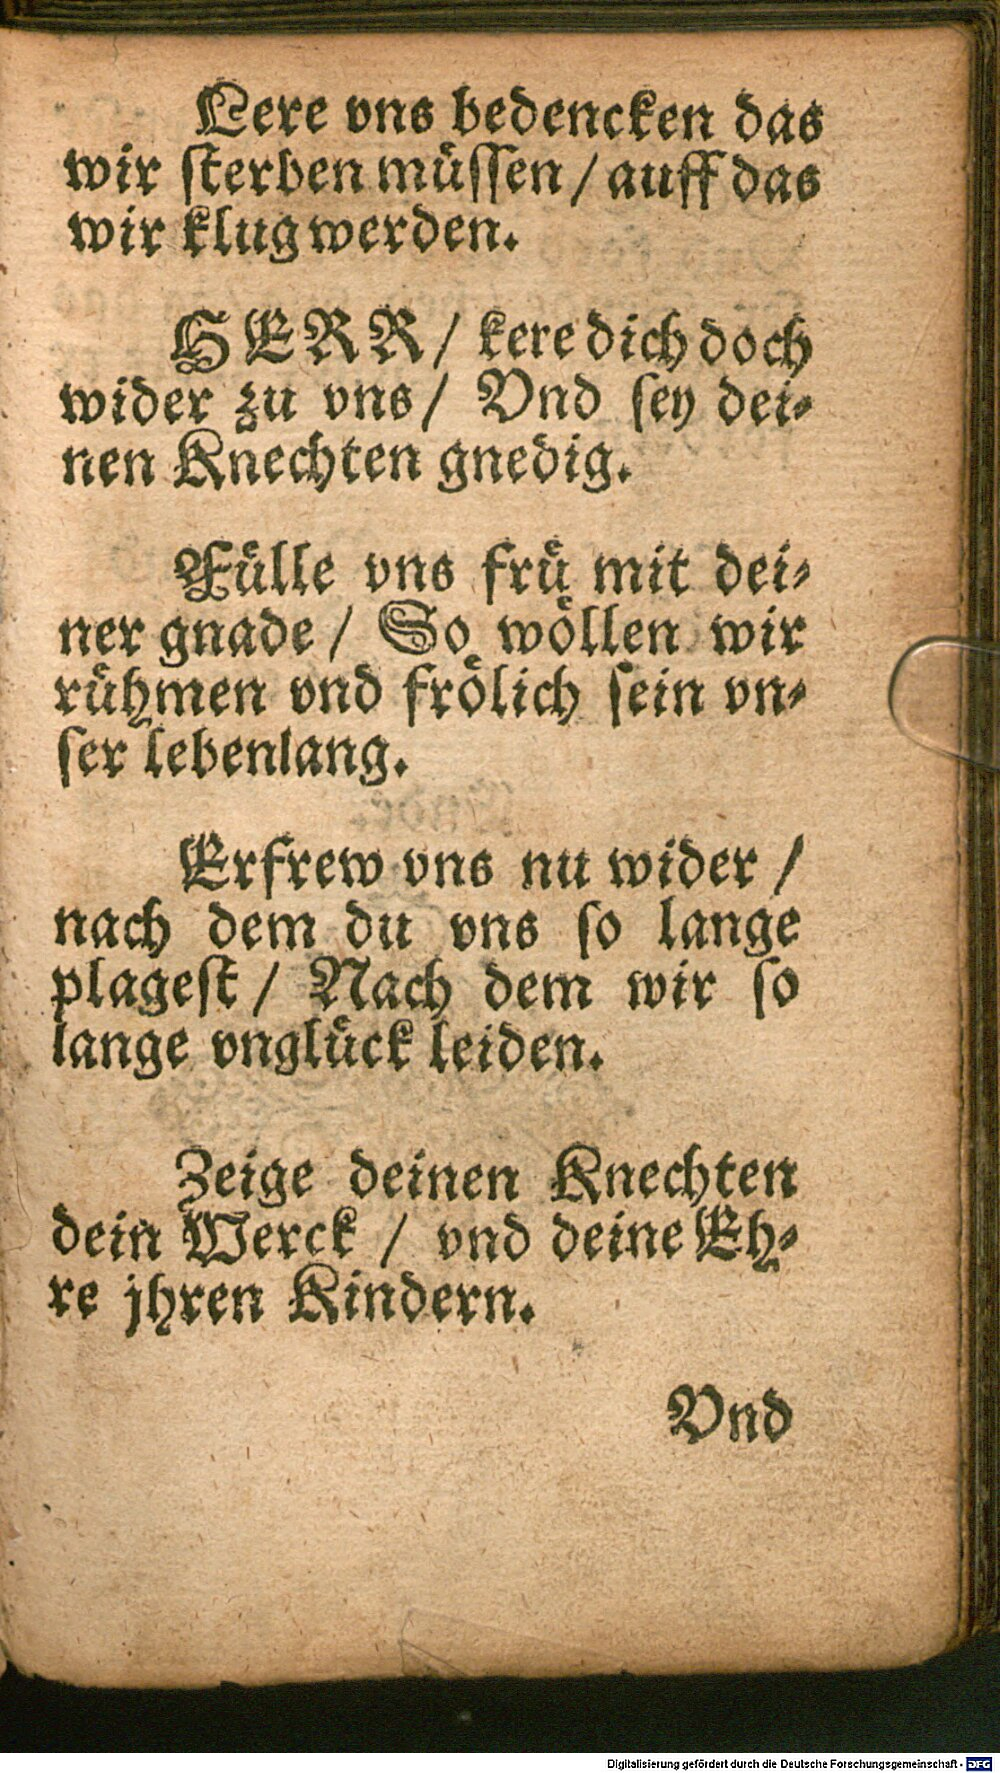 Lere vns bedencken das
wir ſterben müſſen / auff das
wir klug werden.
HERR / kere dich doch
wider zu vns / Vnd ſey dei⸗
nen Knechten gnedig.
Fülle vns frü mit dei⸗
ner gnade / So wöllen wir
rühmen vnd frölich ſein vn⸗
ſer lebenlang.
Erfrew vns nu wider /
nach dem du vns ſo lange
plageſt / Nach dem wir ſo
lange vnglück leiden.
Zeige deinen Knechten
dein Werck / vnd deine Eh⸗
re jhren Kindern.
Vnd
Digitalisierung gefördert durch die Deutsche Forschungsgemeinschaft - DFG